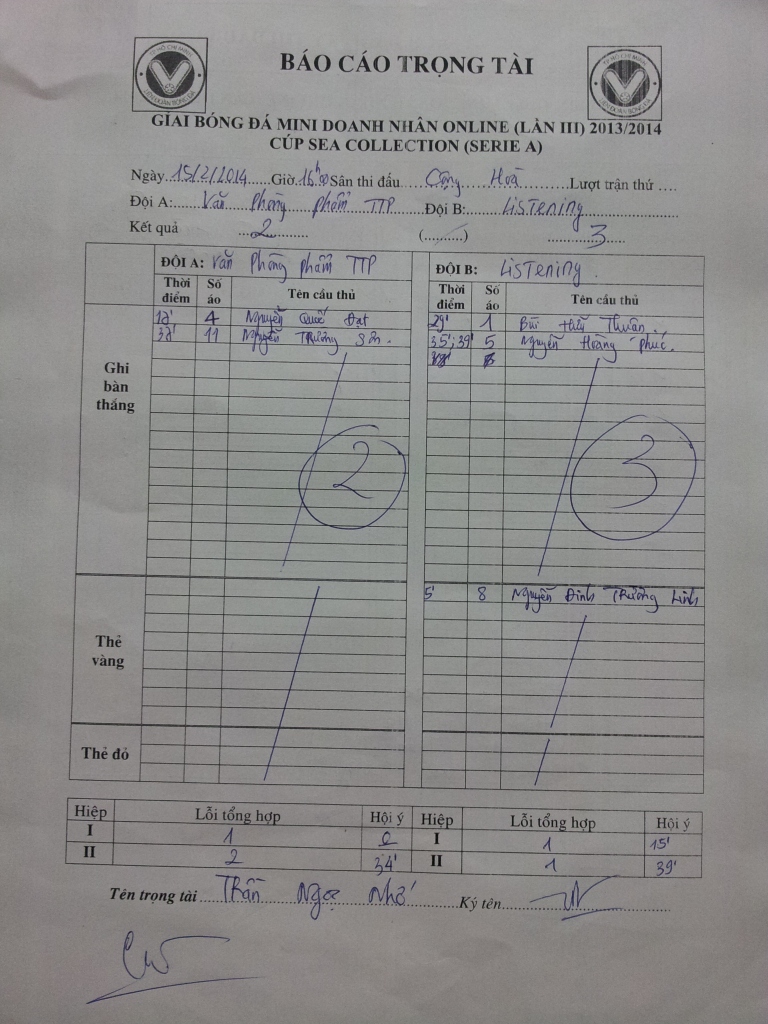 BÁO CÁO TRỌNG TÀI
GIẢI BÓNG ĐÁ MINI DOANH NHÂN ONLINE (LẦN III) 2013/2014
CÚP SEA COLLECTION (SERIE A)
Ngày 15/2/2014 Giờ 16h00 Sân thi đấu Cộng Hoà Lượt trận thứ ....
Đội A: Văn Phòng phẩm TTP Đội B: LisTening
Kết quả 2 (..........) 3
ĐỘI A: Văn Phòng Phẩm TTP ĐỘI B: LisTening.
Thời điểm Số áo Tên cầu thủ Thời điểm Số áo Tên cầu thủ
Ghi bàn thắng
12' 4 Nguyễn Quốc Đạt 29' 1 Bùi Hữu Thuân.
32' 11 Nguyễn Trường Sơn. 35'; 39' 5 Nguyễn Hoàng Phúc.
2 3
Thẻ vàng
5' 8 Nguyễn Đình Trường Linh
Thẻ đỏ
Hiệp Lỗi tổng hợp Hội ý Hiệp Lỗi tổng hợp Hội ý
I 1 0 I 1 15'
II 2 34' II 1 39'
Tên trọng tài Trần Ngọc Nhớ Ký tên